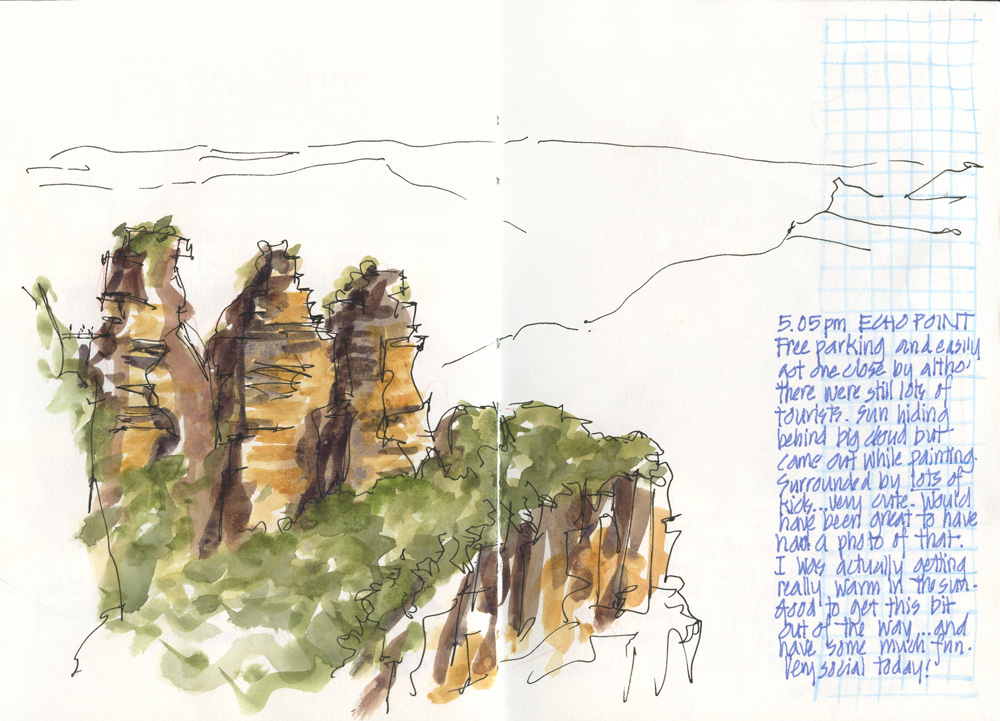 5.05pm ECHO POINT
Free parking and easily
got one close by altho'
there were still lots of
tourists. Sun hiding
behind big cloud but
came out while painting.
Surrounded by lots of
kids...very cute. Would
have been great to have
had a photo of that.
I was actually getting
really warm in the sun.
Good to get this bit
out of the way...and
have some much fun.
Very social today!